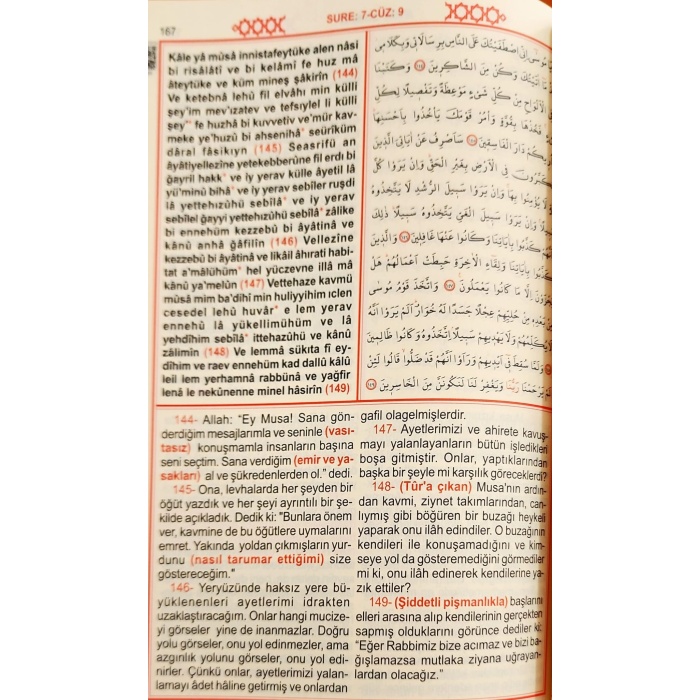 167
SURE: 7-CÜZ: 9
Kâle yâ mûsâ innistafeytüke alen nâsi
bi risâlâtî ve bi kelâmî fe huz mâ
âteytüke ve küm mineş şâkirîn (144)
Ve ketebnâ lehû fil elvâhi min külli
şey'im mev'ızatev ve tefsıylel li külli
şey' fe huzhâ bi kuvvetiv ve'mür kav-
meke ye'huzû bi ahsenihâ seürîküm
dâral fâsikıyn (145) Seasrifü an
âyâtiyellezîne yetekebberûne fil erdı bi
ğayril hakk ve iy yerav külle âyetil lâ
yü'minû bihâ ve iy yerav sebîler ruşdi
lâ yettehızûhü sebîlâ ve iy yerav
sebîlel ğayyi yettehızûhü sebîlâ zâlike
bi ennehüm kezzebû bi âyâtinâ ve
kânû anhâ ğâfilîn (146) Vellezîne
kezzebû bi âyâtinâ ve likâil âhırati habi-
tat a'mâlühüm hel yüczevne illâ mâ
kânû ya'melûn (147) Vettehaze kavmü
mûsâ mim ba'dihî min huliyyihim ıclen
cesedel lehû huvâr e lem yerav
ennehû lâ yükellimühüm ve lâ
yehdîhim sebîlâ ittehazûhü ve kânû
zâlimîn (148) Ve lemmâ sükıta fî ey-
dîhim ve raev ennehüm kad dallû kâlû
leil lem yerhamnâ rabbünâ ve yağfir
lenâ le nekûnenne minel hâsirîn (149)
مُوسٰى اِنِّى اصْطَفَيْتُكَ عَلَى النَّاسِ بِرِسَالَاتِى وَبِكَلَامِى
مَا اٰتَيْتُكَ وَكُنْ مِنَ الشَّاكِرِينَ ﴿١٤٤﴾ وَكَتَبْنَا
فِى الْاَلْوَاحِ مِنْ كُلِّ شَىْءٍ مَوْعِظَةً وَتَفْصِيلًا لِكُلِّ
فَخُذْهَا بِقُوَّةٍ وَأْمُرْ قَوْمَكَ يَأْخُذُوا بِاَحْسَنِهَا
دَارَ الْفَاسِقِينَ ﴿١٤٥﴾ سَاَصْرِفُ عَنْ اٰيَاتِىَ الَّذِينَ
فِى الْاَرْضِ بِغَيْرِ الْحَقِّ وَاِنْ يَرَوْا كُلَّ
لَا يُؤْمِنُوا بِهَا وَاِنْ يَرَوْا سَبِيلَ الرُّشْدِ لَا يَتَّخِذُوهُ
وَاِنْ يَرَوْا سَبِيلَ الْغَىِّ يَتَّخِذُوهُ سَبِيلًا ذٰلِكَ
كَذَّبُوا بِاٰيَاتِنَا وَكَانُوا عَنْهَا غَافِلِينَ ﴿١٤٦﴾ وَالَّذِينَ
بِاٰيَاتِنَا وَلِقَاءِ الْاٰخِرَةِ حَبِطَتْ اَعْمَالُهُمْ هَلْ
اِلَّا مَا كَانُوا يَعْمَلُونَ ﴿١٤٧﴾ وَاتَّخَذَ قَوْمُ مُوسٰى
بَعْدِهِ مِنْ حُلِيِّهِمْ عِجْلًا جَسَدًا لَهُ خُوَارٌ اَلَمْ يَرَوْا اَنَّهُ
يُكَلِّمُهُمْ وَلَا يَهْدِيهِمْ سَبِيلًا اِتَّخَذُوهُ وَكَانُوا ظَالِمِينَ
وَلَمَّا سُقِطَ فِى اَيْدِيهِمْ وَرَاَوْا اَنَّهُمْ قَدْ ضَلُّوا قَالُوا لَئِنْ
يَرْحَمْنَا رَبُّنَا وَيَغْفِرْ لَنَا لَنَكُونَنَّ مِنَ الْخَاسِرِينَ ﴿١٤٩﴾
144- Allah: "Ey Musa! Sana gön-
derdiğim mesajlarımla ve seninle (vası-
tasız) konuşmamla insanların başına
seni seçtim. Sana verdiğim (emir ve ya-
sakları) al ve şükredenlerden ol." dedi.
145- Ona, levhalarda her şeyden bir
öğüt yazdık ve her şeyi ayrıntılı bir şe-
kilde açıkladık. Dedik ki: "Bunlara önem
ver, kavmine de bu öğütlere uymalarını
emret. Yakında yoldan çıkmışların yur-
dunu (nasıl tarumar ettiğimi) size
göstereceğim."
146- Yeryüzünde haksız yere bü-
yüklenenleri ayetlerimi idrakten
uzaklaştıracağım. Onlar hangi mucize-
yi görseler yine de inanmazlar. Doğru
yolu görseler, onu yol edinmezler, ama
azgınlık yolunu görseler, onu yol edi-
nirler. Çünkü onlar, ayetlerimizi yalan-
lamayı âdet hâline getirmiş ve onlardan
gafil olagelmişlerdir.
147- Ayetlerimizi ve ahirete kavuş-
mayı yalanlayanların bütün işledikleri
boşa gitmiştir. Onlar, yaptıklarından
başka bir şeyle mi karşılık görecekler?
148- (Tûr'a çıkan) Musa'nın ardın-
dan kavmi, ziynet takımlarından, can-
lıymış gibi böğüren bir buzağı heykeli
yaparak onu ilah edindiler. O buzağının
kendileri ile konuşamadığını ve kim-
seye yol da gösteremediğini görmediler
mi ki, onu ilah edinerek kendilerine ya-
zık ettiler?
149- (Şiddetli pişmanlıkla) başlarını
elleri arasına alıp kendilerinin gerçekten
sapmış olduklarını görünce dediler ki:
"Eğer Rabbimiz bize acımaz ve bizi ba-
ğışlamazsa mutlaka ziyana uğrayan-
lardan olacağız."